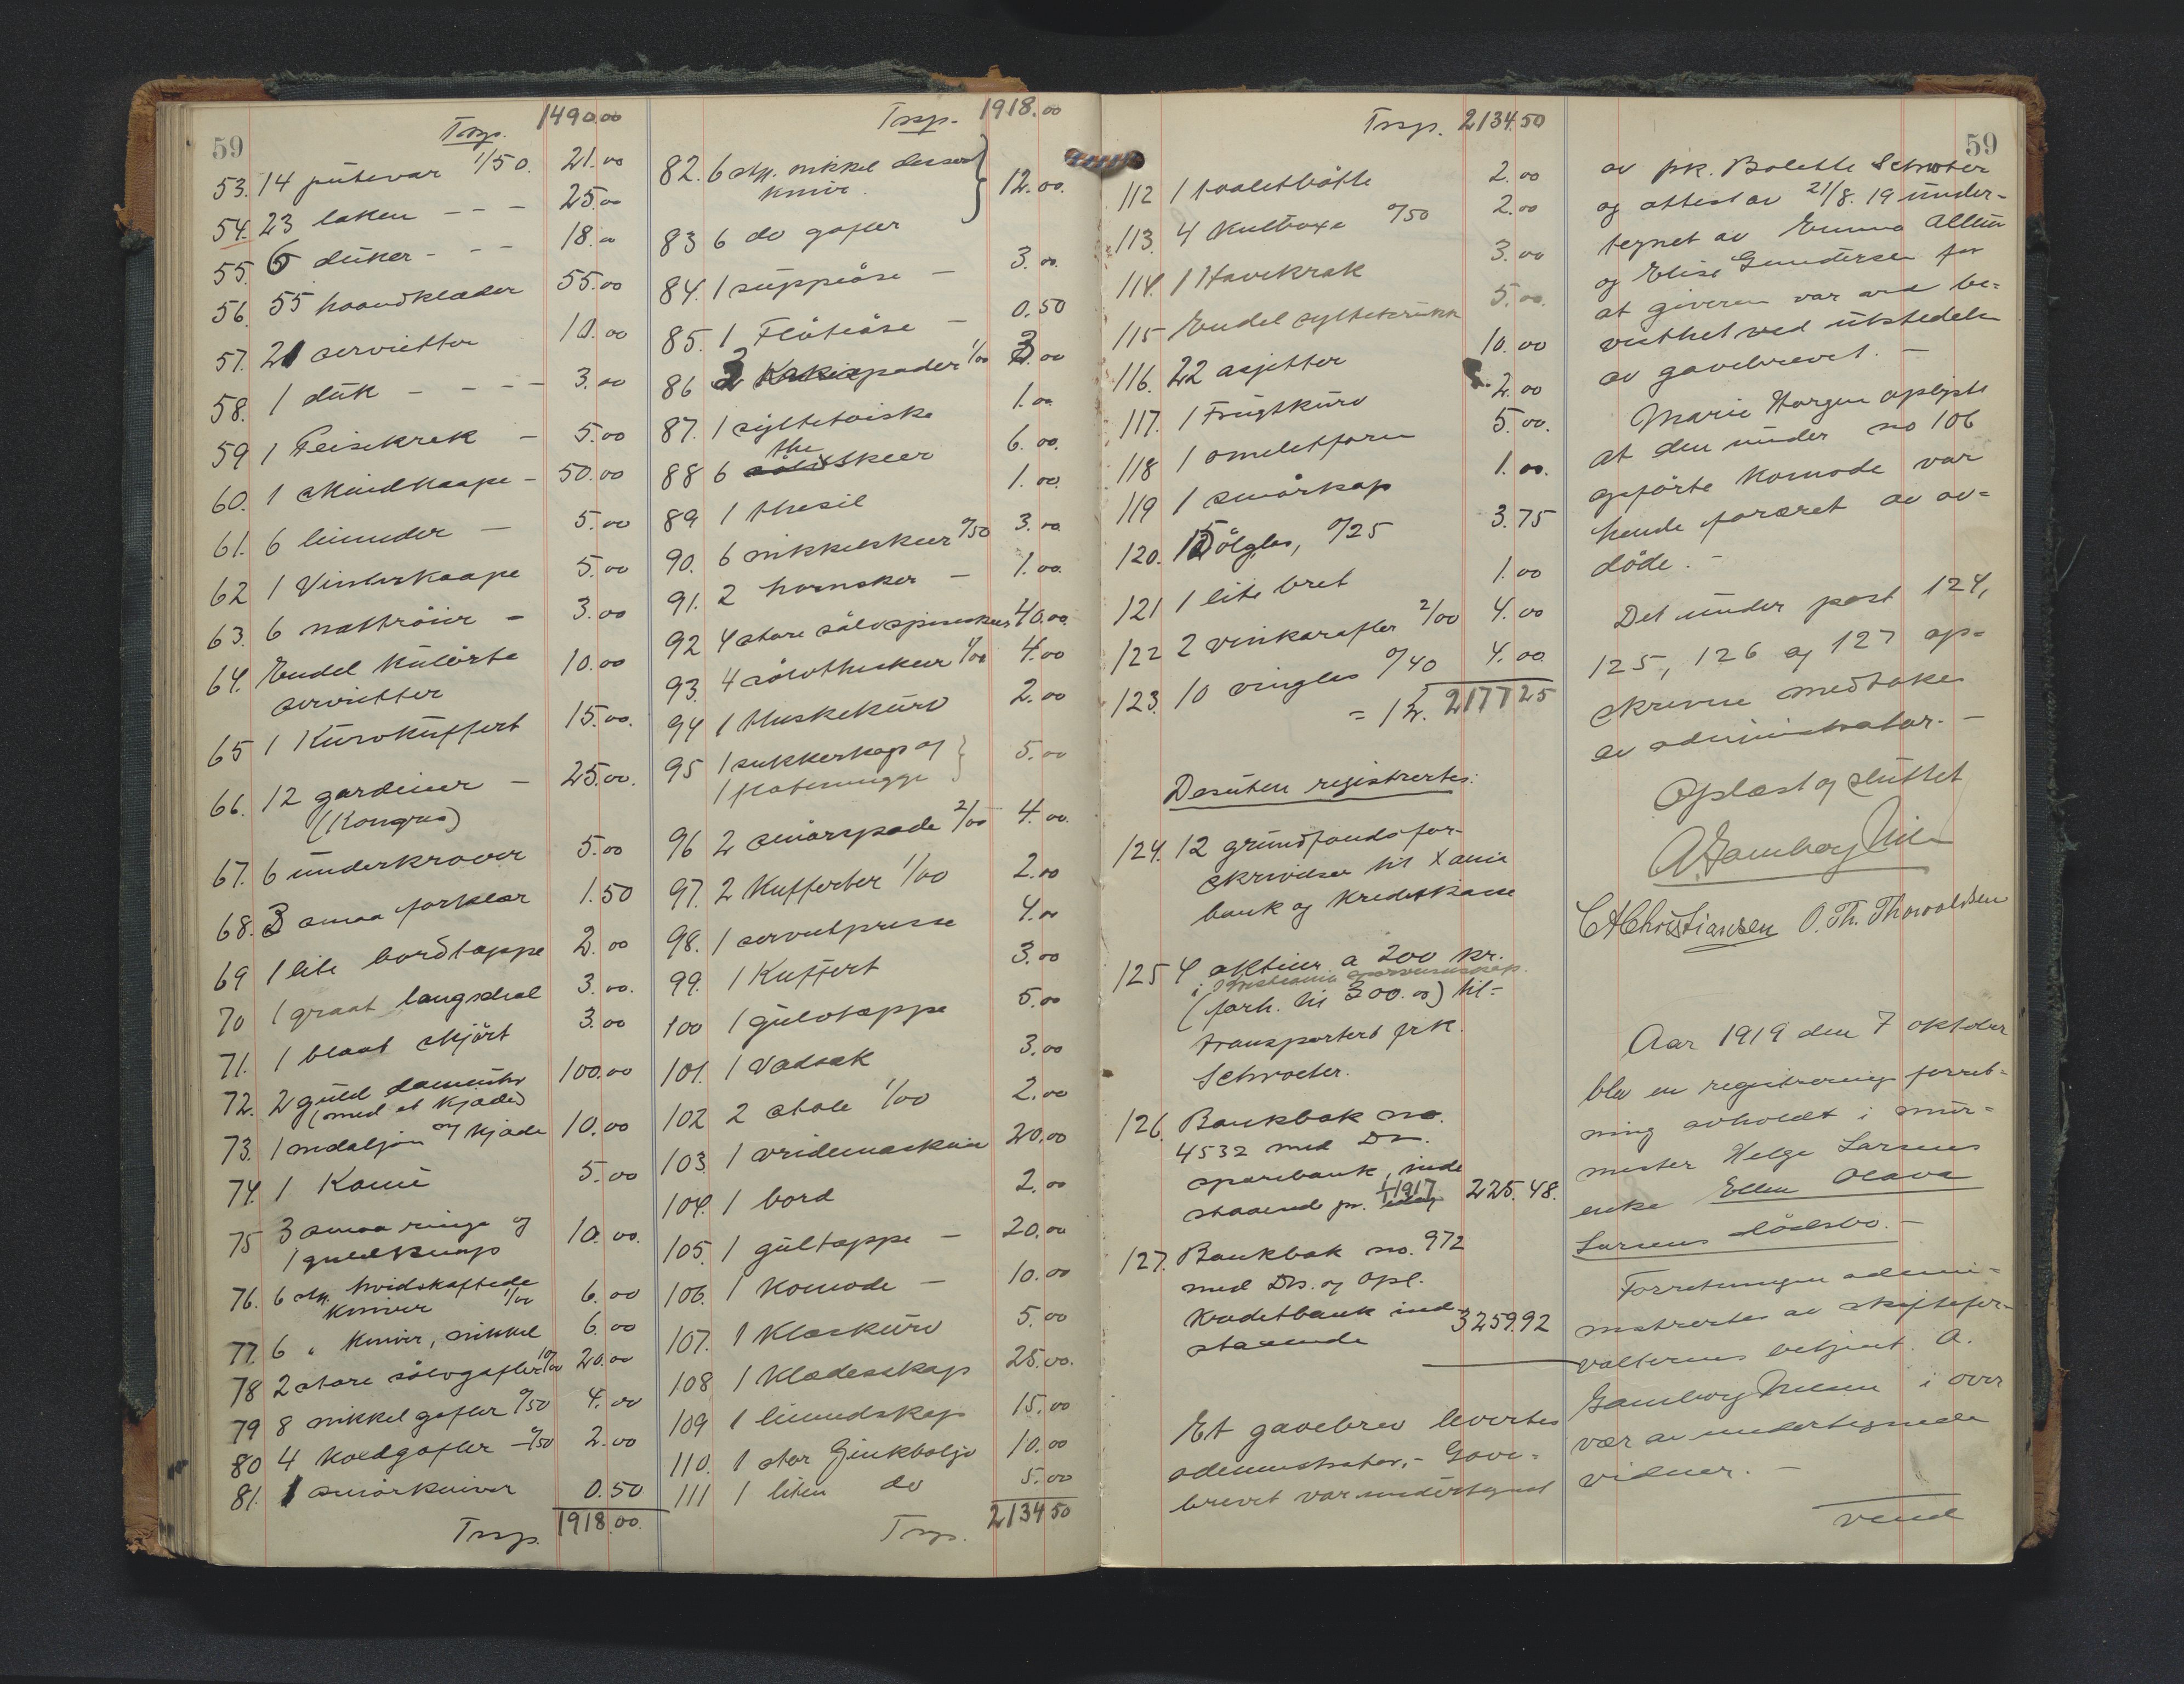 59
Trsp. 1490.00
53. 14 putevar 1/50. 21.00
54. 23 laken - - - 25.00
55. 6 duker - - - 18.00
56. 55 haandklæder 55.00
57. 21 servietter 10.00
58. 1 duk - - - - 3.00
59 1 Peisekrak - 5.00
60. 1 skindkaape - 50.00
61. 6 linunder - 5.00
62 1 Vinterkaape 5.00
63. 6 nattröier - 3.00
64. Endel kulörte 10.00
servietter
65 1 Kurvkuffert 15.00.
66. 12 gardiner - 25.00.
(Kongres)
67. 6 underkraver 5.00
68. 3 smaa forklær 1.50
69 1 lite bordtæppe 2.00
70 1 graat langschal 3.00.
71. 1 blaat skjört 3.00
72. 2 guld dameuhr 100.00
(med et kjæde)
73. 1 medaljon og kjæde 10.00
74. 1 Kamé 5.00
75 3 smaa ringe og 10.00.
1 guldknap
76. 6 stk. hvidskaftede
kniver 1/00 6.00
77. 6 " kniver, nikkel 6.00
78 2 store sölvgafler 10/00 20.00
79 8 nikkel gafler 0/50 4.00
80 4 koldgafler - 0/50 2.00
81. 1 smörkniver 0.50
Trsp. 1918.00.
Trsp. 1918.00
82. 6 stk. nikkel dessert
kniver. } 12.00.
83 6 do gafler
84. 1 suppeöse - 3.00.
85. 1 Flöteöse - 0.50
86 3 Kakespader 1/00 3.00
87. 1 syltetoiske 1.00
the
88 6 sölvskeer 6.00.
89 1 thesil 1.00.
90. 6 nikkelskeer 0/50 3.00
91. 2 hornskeer - 1.00.
92 4 store sölvspiseskeer 40.00.
93. 4 sölvtheskeer 1/00 4.00
94 1 theskekurv 2.00
95 1 sukkerkop og } 5.00
1 flötemugge
96 2 smörspade 2/00 - 4.00.
97. 2 Kufferter 1/00 2.00
98. 1 servietpresse 4.00
99. 1 Kuffert 3.00
100 1 gulvtæppe 5.00
101. 1 Vadsæk 3.00
102 2 stole 1/00 2.00
103 1 vridemaskine 20.00
104. 1 bord 2.00
105. 1 gultæppe - 20.00
106. 1 Komode - 10.00
107. 1 Klæskurv 5.00
108 1 Klædesskap 25.00.
109 1 linnedskap 15.00
110. 1 stor Zinkbalje 10.00
111 1 liten do 5.00
Trsp. 2134 50
59
Trsp. 2134.50
112 1 toaletbötte 2.00
113. 4 Kulboxe 0/50 2.00
114. 1 Havekrak 3.00
115 Endel syltekrukk 5.00.
116. 22 asjetter 10.00
117. 1 Frugtkurv 2.00
118 1 omeletform 5.00.
119 1 smörkop 1.00.
120. 15 ölglas, 0/25 3.75
121 1 lite bret 1.00
122 2 vinkarafler 2/00 4.00
123. 10 vinglas 0/40 4.00
= 2177 25
Desuten registrertes:
124. 12 grundfondsfor-
skrivelser til Xania
bank og Kreditkasse
125 4 aktier a 200 kr.
i Kristiania
(forh. til 300.00) til-
transportert frk.
Schroeter.
126. Bankbok no.
4532 med Dr.
sparebank, inde
staaende pr. 1/1 1917 225.48.
127. Bankbok no. 972
med Drs. og Opl.
Kreditbank ind-
staaende 3259.92
Et gavebrev levertes
administrator. - Gave-
brevet var undertegnet
av frk. Bolette Schrøter
og attest av 21/8. 19 under-
tegnet av Emma Allum
og Elise Gundersen for
at giveren var ved be-
visthet ved utstedelse
av gavebrevet. -
Marie Horgen oplyste
at den under no 106
opförte Komode var
hende foræret av av-
döde. -
Det under post 124,
125, 126 og 127 op-
skrevne medtokes
av administrator. -
Oplæst og sluttet
A. Gamborg Nilsen
C A Christiansen O. Th. Thorvaldsen
Aar 1919 den 7 oktober
blev en registrerings forret-
ning avholdt i mur-
mester Helge Larsens
enke Ellen Olava
Larsens dödsbo. -
Forretningen admini-
nistrertes av skiftefor-
valterens betjent A.
Gamborg Nilsen i over
vær av undertegnede
vidner. -
vend